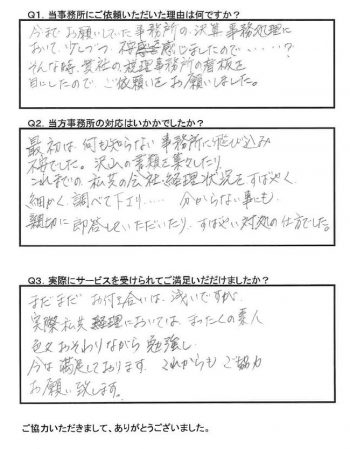 Q1. 当事務所にご依頼いただいた理由は何ですか？
今までお願いしていた事務所の、決算事務処理に
おいて、少しづつ 不信感感じましたので・・・・・？
そんな時、貴社の税理事務所の看板を
目にしたので ご依頼をお願いしました。
Q2. 当方事務所の対応はいかかでしたか？
最初は、何も知らない事務所に飛び込み
不安でした。沢山の書類を集めたり
これまでの私共の会社経理状況をすばやく
細かく、調べて下さり・・・ 分からない事にも
親切に即答していただいたり、すばやい対処の仕方でした。
Q3. 実際にサービスを受けられてご満足いだだけましたか？
まだまだ お付き合いは、浅いですが、
実際私共経理においては まったくの素人
色々おそわりながら 勉強し
今は満足しております。これからも ご協力
お願い致します。
ご協力いただきまして、ありがとうございました。